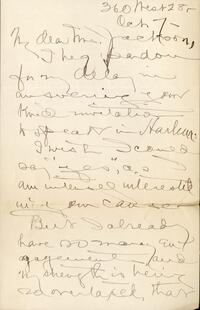 360 West 28-
Oct. 7-
My dear Mrs. Jackson,
I beg pardon
for my delay in
answering your
kind invitation
to speak in Harlem.
I wish I could
say "yes", as I
am intensely interested
in our cause
But I already
have so many en-
gagements, and
my strength is being
so overtaxed, that